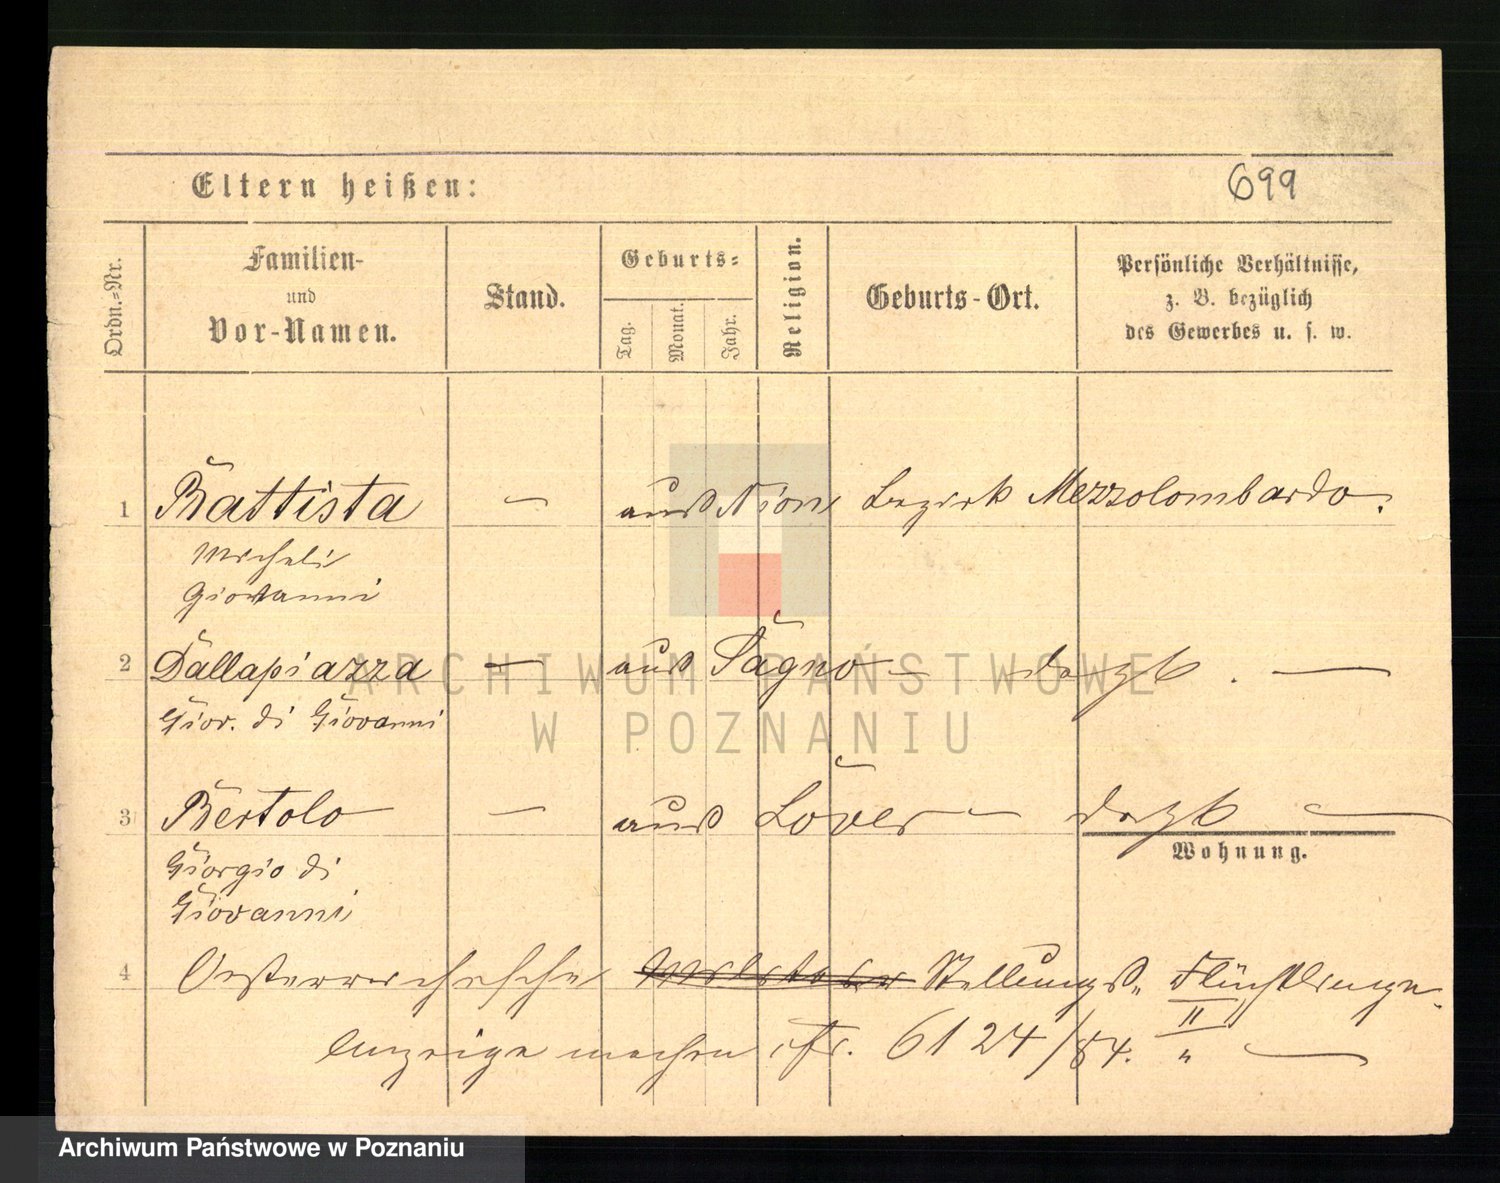 Eltern heißen:
699
Ordn.-Nr.
Familien-
und
Vor-Namen.
Stand.
Geburts-
Tag.
Monat.
Jahr.
Religion.
Geburts-Ort.
Persönliche Verhältnisse,
z. B. bezüglich
des Gewerbes u. s. w.
1 Battista – aus Bezirk Mezzolombardo.
Micheli
Giovanni
2 Dallapiazza – aus – dezgl. –
Giov. di Giovanni
3 Bertolo – aus Lover – dezgl. –
Wohnung.
Giorgio di
Giovanni
4 Oesterreichische Stellungs- Flüchtlinge.
Anzeige machen 6124/84. II
ARCHIWUM PAŃSTWOWE
W POZNANIU
Archiwum Państwowe w Poznaniu